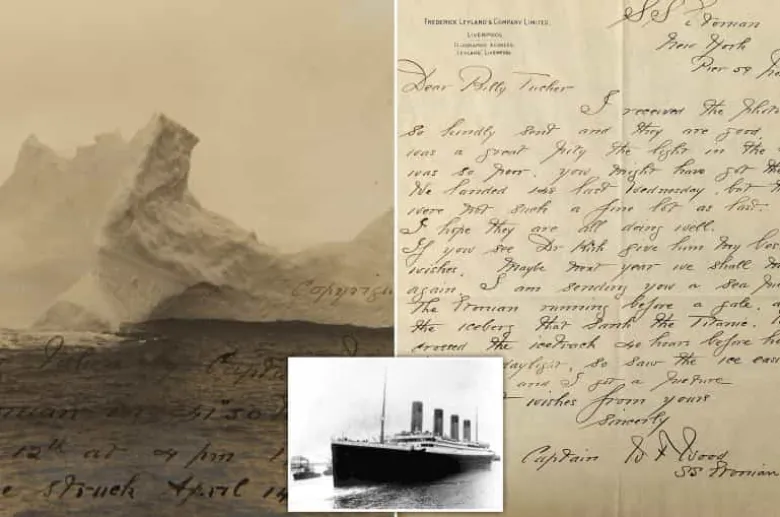 Copyrigh
Capta
on 41°50
12th at 4 pm
struck April 14
FREDERICK LEYLAND & COMPANY LIMITED.
LIVERPOOL.
TELEGRAPHIC ADDRESS,
LEYLAND, LIVERPOOL.
SS Etonian
New York
Pier 59
Dear Billy Tucker
I received the
so kindly sent and they are good
was a great pity the light in the
was so poor. you might have got
We landed 148 last Wednesday. but
were not such a fine lot as last.
I hope they are all doing well.
If you see Dr Kirk give him my
wishes. Maybe next year we shall
again. I am sending you a sea
The Etonian running before a gale.
the iceberg that sank the Titanic.
crossed the icetrack 40 hours before
daylight. so saw the ice
and I got a picture
wishes from yours
Sincerly
Captain W F Wood
SS Etonian